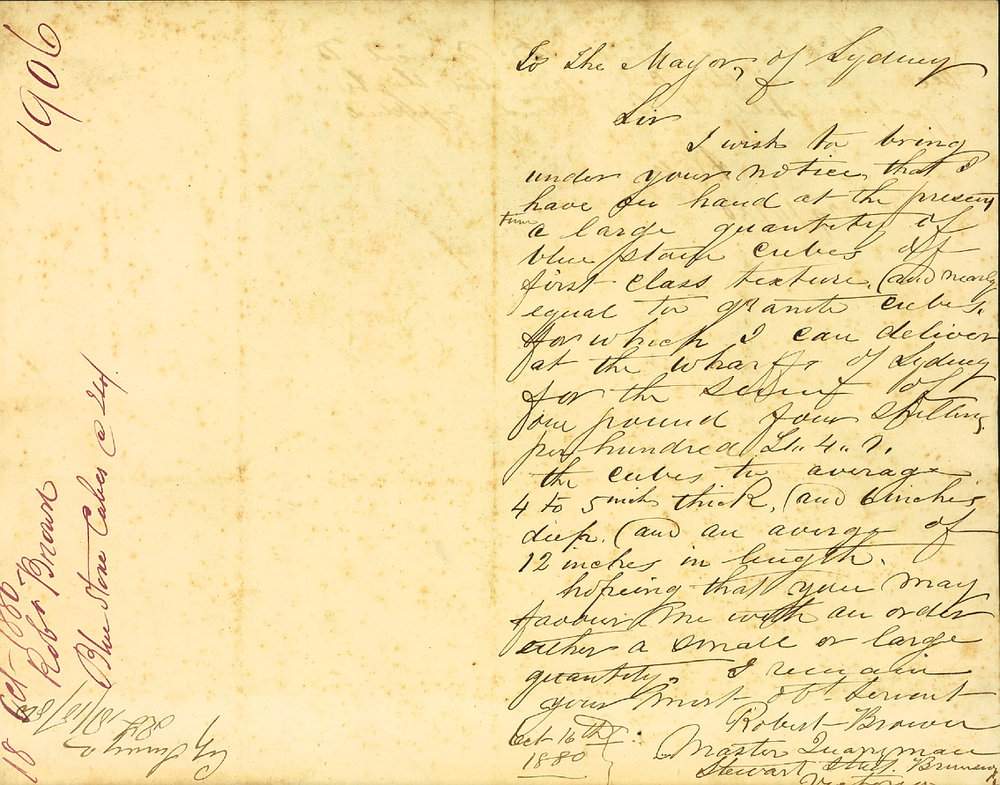 To the Mayor, of Sydney
Sir
I wish to bring
under your notice, that I
have on hand at the present
time
a large quantity of
blue stone cubes of
first class texture, (and nearly
equal to granite cubes,
for which I can deliver
at the wharfs of Sydney
for the sum of
one pound four shilling
per hundred £1.. 4.. 
the cubes to average
4 to 5 inch thick, (and 6 inches
deep. (and an averge of
12 inches in length.
hopeing that you may
favour me with an order
either a small or large
quantity, I remain
your most obt servant
Robert Brown
Oct 16th
1880
Master Quarryman
Stewart
Victoria
1906
18 Oct 1880
Robt Brown
Blue Stone Cubes @ 24/
18/10/80